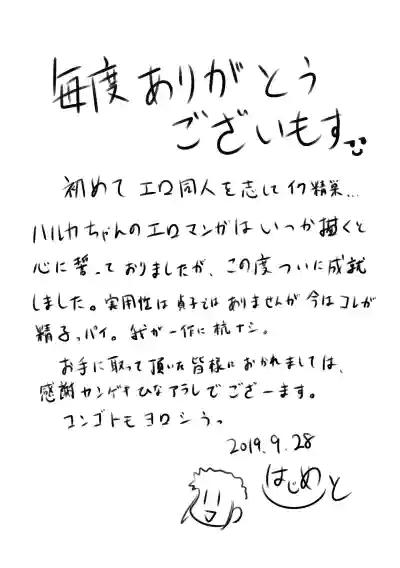 毎度ありがとう
ございもす
初めてエロ同人を志して
ハルカちゃんのエロマンガはいつか描くと
心に誓っておりましたが、この度ついに成就
しました。実用性は ありませんが今はコレが
精子っパイ。我が一作に杭ナシ。
お手に取って頂いた皆様におかれましては、
感謝カンゲキひなアラレでございます。
コンゴトモヨロシうっ
2019.9.28
はじめと